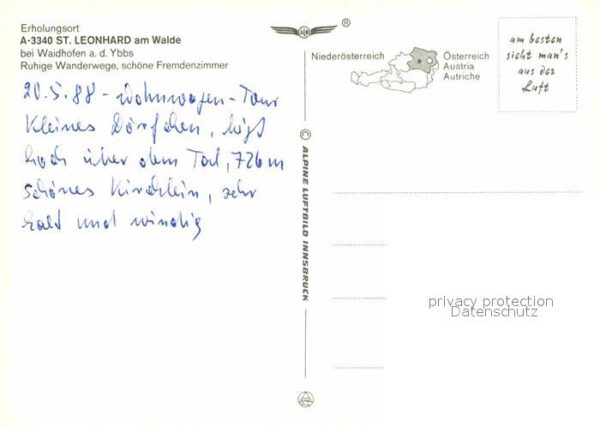 Erholungsort
A-3340 ST. LEONHARD am Walde
bei Waidhofen a. d. Ybbs
Ruhige Wanderwege, schöne Fremdenzimmer
20.5.88 - Wohnwagen-Tour
Kleines Dörfchen, liegt
hoch über dem Tal, 726 m
schönes Kirchlein, sehr
kalt und windig
©ALPINE LUFTBILD INNSBRUCK
®
Niederösterreich
Österreich
Austria
Autriche
am besten
sieht man's
aus der
Luft
privacy protection
Datenschutz